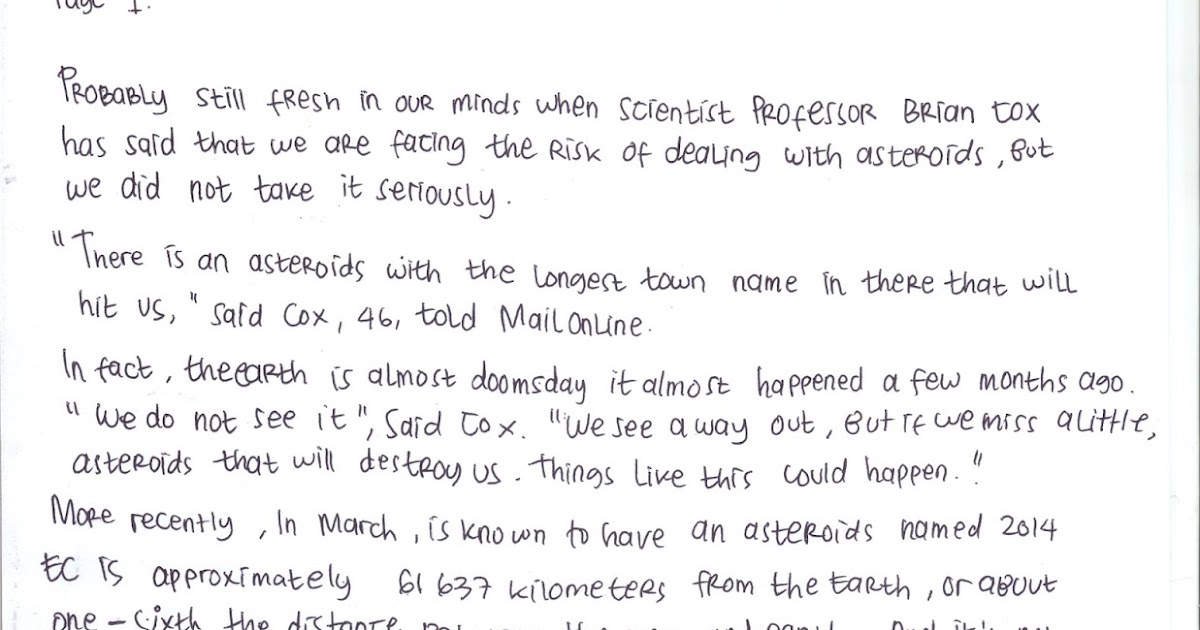 Page 1.
Probably still fresh in our minds when scientist Professor Brian Cox
has said that we are facing the risk of dealing with asteroids, but
we did not take it seriously.
"There is an asteroids with the longest town name in there that will
hit us," said Cox, 46, told MailOnline.
In fact, the earth is almost doomsday it almost happened a few months ago.
"We do not see it", said Cox. "We see a way out, but if we miss a little,
asteroids that will destroy us. Things like this could happen."
More recently, In March, is known to have an asteroids named 2014
EC is approximately 61 637 kilometers from the Earth, or about
one-sixth the distance